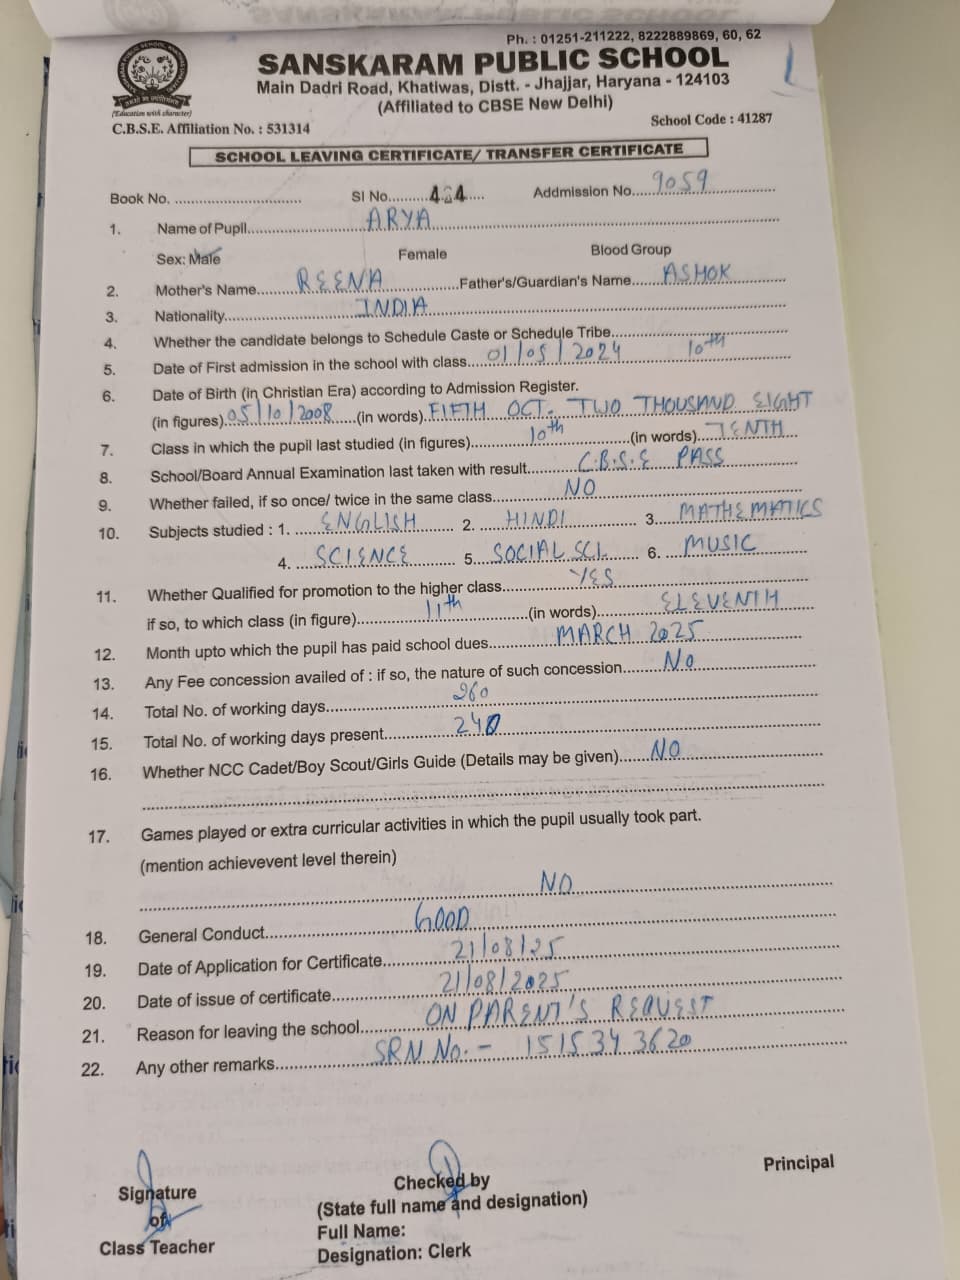 Ph. : 01251-211222, 8222889869, 60, 62
SANSKARAM PUBLIC SCHOOL
Main Dadri Road, Khatiwas, Distt. - Jhajjar, Haryana - 124103
(Affiliated to CBSE New Delhi)
(Education with character)
C.B.S.E. Affiliation No. : 531314 School Code : 41287
SCHOOL LEAVING CERTIFICATE/ TRANSFER CERTIFICATE
Book No. .............................. SI No. 484 Addmission No. 9059
1. Name of Pupil ARYA
Sex: Male Female Blood Group
2. Mother's Name REENA Father's/Guardian's Name ASHOK
3. Nationality INDIA
4. Whether the candidate belongs to Schedule Caste or Schedule Tribe
5. Date of First admission in the school with class 01/05/2024 10th
6. Date of Birth (in Christian Era) according to Admission Register.
(in figures) 05/10/2008 (in words) FIFTH OCT. TWO THOUSAND EIGHT
7. Class in which the pupil last studied (in figures) 10th (in words) TENTH
8. School/Board Annual Examination last taken with result C.B.S.E PASS
9. Whether failed, if so once/ twice in the same class NO
10. Subjects studied : 1. ENGLISH 2. HINDI 3. MATHEMATICS
4. SCIENCE 5. SOCIAL SCI. 6. MUSIC
11. Whether Qualified for promotion to the higher class YES
if so, to which class (in figure) 11th (in words) ELEVENTH
12. Month upto which the pupil has paid school dues MARCH 2025
13. Any Fee concession availed of : if so, the nature of such concession No
14. Total No. of working days 260
15. Total No. of working days present 240
16. Whether NCC Cadet/Boy Scout/Girls Guide (Details may be given) NO
17. Games played or extra curricular activities in which the pupil usually took part.
(mention achievevent level therein)
NO
18. General Conduct GOOD
19. Date of Application for Certificate 21/08/25
20. Date of issue of certificate 21/08/2025
21. Reason for leaving the school ON PARENT'S REQUEST
22. Any other remarks SRN No. - 1515343620
Signature
of
Class Teacher
Checked by
(State full name and designation)
Full Name:
Designation: Clerk
Principal